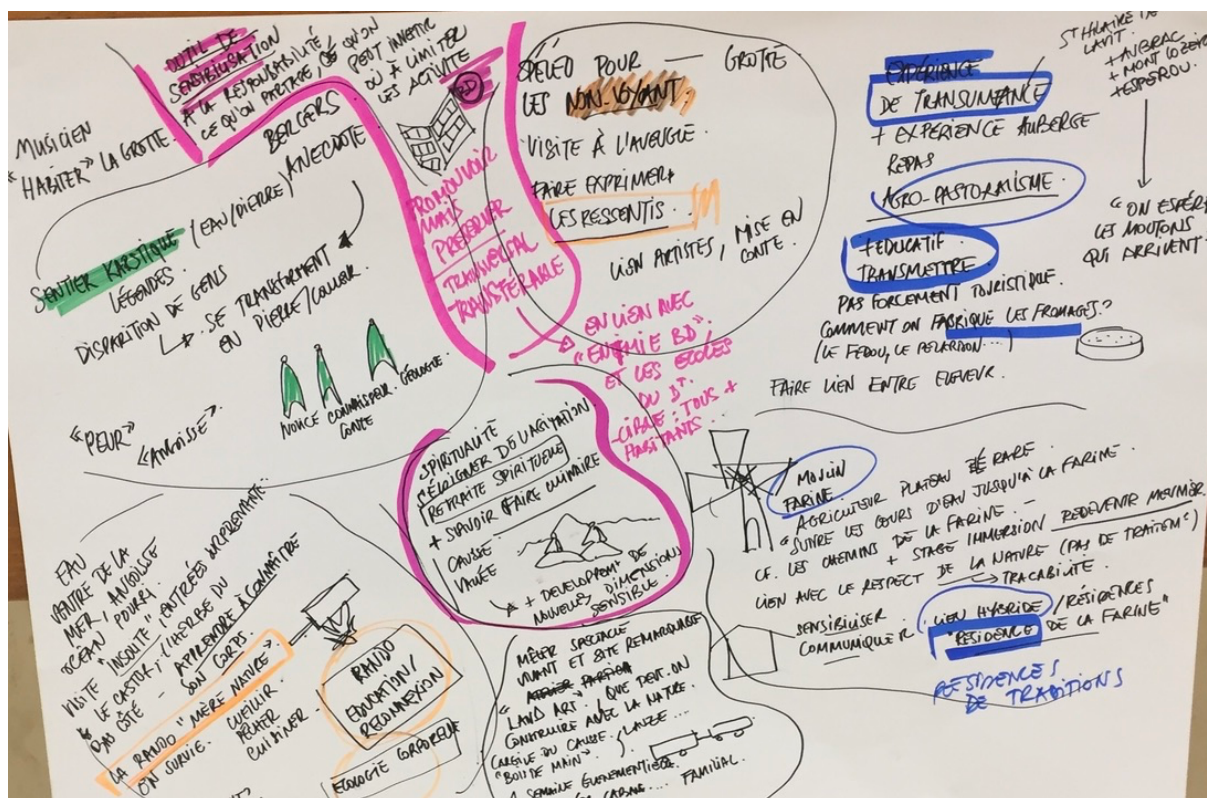 OUTIL DE
SENSIBILISATION
À LA RESPONSABILITÉ,
CE QU'ON PARTAGE, CE QU'ON
PEUT INVESTIR
OU À LIMITER
LES ACTIVITÉ
BD
MUSICIEN
"HABITER" LA GROTTE.
BERGERS
ANECDOTE
SENTIER KARSTIQUE (EAU/PIERRE)
LÉGENDES.
DISPARITION DE GENS
SE TRANSFORMENT
EN PIERRE/COULEUR.
NOVICE CONNAISSEUR. GÉOLOGIE.
CONTE
"PEUR"
"ANGOISSE"
PROMOUVOIR
MAIS
PRÉSERVER
TRANSVERSAL
TRANSFÉRABLE
SPÉLÉO POUR — GROTTE
LES NON-VOYANT.
VISITE À L'AVEUGLE.
FAIRE EXPRIMER
LES RESSENTIS.
LIEN ARTISTES, MISE EN
CONTE.
EN LIEN AVEC
ET LES ECOLES
DU DT.
CIBLE : TOUS +
HABITANTS.
EXPÉRIENCE
DE TRANSUMANCE
+ EXPÉRIENCE AUBERGE
REPAS
AGRO-PASTORALISME.
+ EDUCATIF.
TRANSMETTRE
PAS FORCEMENT TOURISTIQUE.
COMMENT ON FABRIQUE LES FROMAGES?
(LE FEDOU, LE PELARDON...)
FAIRE LIEN ENTRE ELEVEUR.
ST HILAIRE DE
LAVIT
+ AUBRAC
+ MONT LOZÈRE
+ ESPEROU.
"ON ESPÉR
LES MOUTONS
QUI ARRIVENT
SPIRITUALITÉ
S'ÉLOIGNER DE L'AGITATION
RETRAITE SPIRITUELLE
+ SAVOIR FAIRE CULINAIRE
CAUSSE
VALLÉE
+ DEVELOPPEMT DE
NOUVELLES DIMENSIONS
SENSIBLE.
MOULIN
FARINE
AGRICULTEUR PLATEAU RARE
"SUIVRE LES COURS D'EAU JUSQU'À LA FARINE.
CF. LES CHEMINS DE LA FARINE.
+ STAGE IMMERSION REDEVENIR MEUNIER.
LIEN AVEC LE RESPECT DE LA NATURE (PAS DE TRAITEMt)
TRACABILITÉ.
SENSIBILISER
COMMUNIQUER
LIEN HYBRIDE / RÉSIDENCES
"RÉSIDENCE DE LA FARINE"
RÉSIDENCES
DE TRADITIONS
EAU
VENTRE DE LA
MER, ANGOISSE
OCÉAN POURRI
VISITE "INSOLITE", ENTRÉES SURPRENANTE.
LE CASTOR, L'HERBE DU
PAS CÔTÉ - APPRENDRE À CONNAÎTRE
SON CORPS.
LA RANDO "MÈRE NATURE"
EN SURVIE. CUEILLIR.
PÊCHER
CUISINER
RANDO
EDUCATION/
RECONNEXION
ECOLOGIE CORPORELLE
MÊLER SPECTACLE
VIVANT ET SITE REMARQUABLE
LAND ART : QUE PEUT-ON
CONSTRUIRE AVEC LA NATURE.
(ARGILE DU CAUSSE, LAUZE...
1 SEMAINE ÉVÉNEMENTIELLE
CABANE... FAMILIAL.